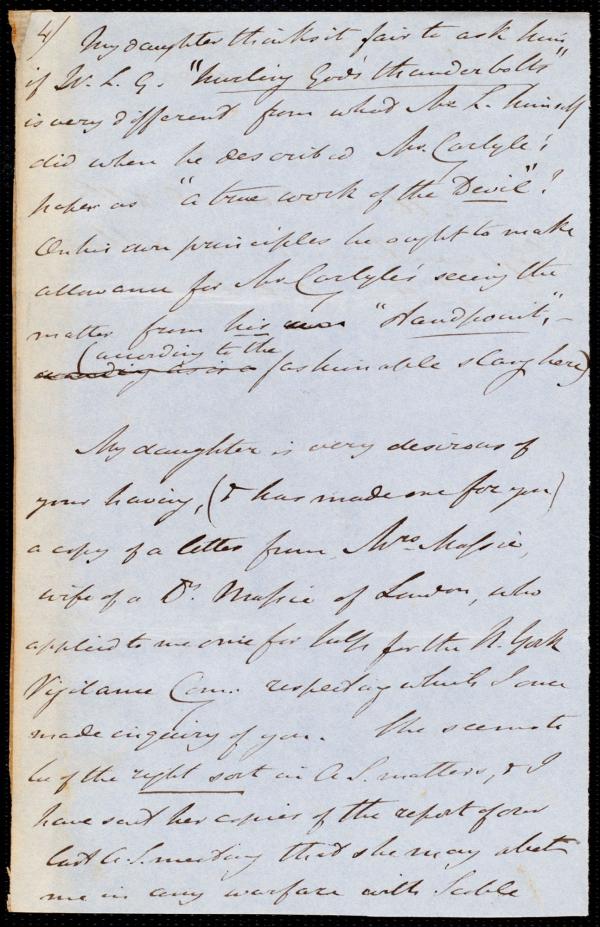 4/ My daughter thinks it fair to ask him
if W. L. G. "hurling God's thunderbolts"
is very different from what Mr L. himself
did when he described Mr. Carlyle's
paper as "a true work of the Devil"?
On his own principles he ought to make
allowance for Mr Carlyle's seeing the
matter from his own "Standpoint", –
(according to the
according as is a fashionable slang here)
My daughter is very desirous of
your having, (& has made one for you)
a copy of a letter from Mrs. Massie,
wife of a Dr. Massie of London, who
applied to me once for help for the N. York
Vigilance Com. respecting which I once
made inquiry of you. She seems to
be of the right sort in A. S. matters, & I
have sent her copies of the report of our
last A. S. meeting that she may abet
me in any warfare with Sable